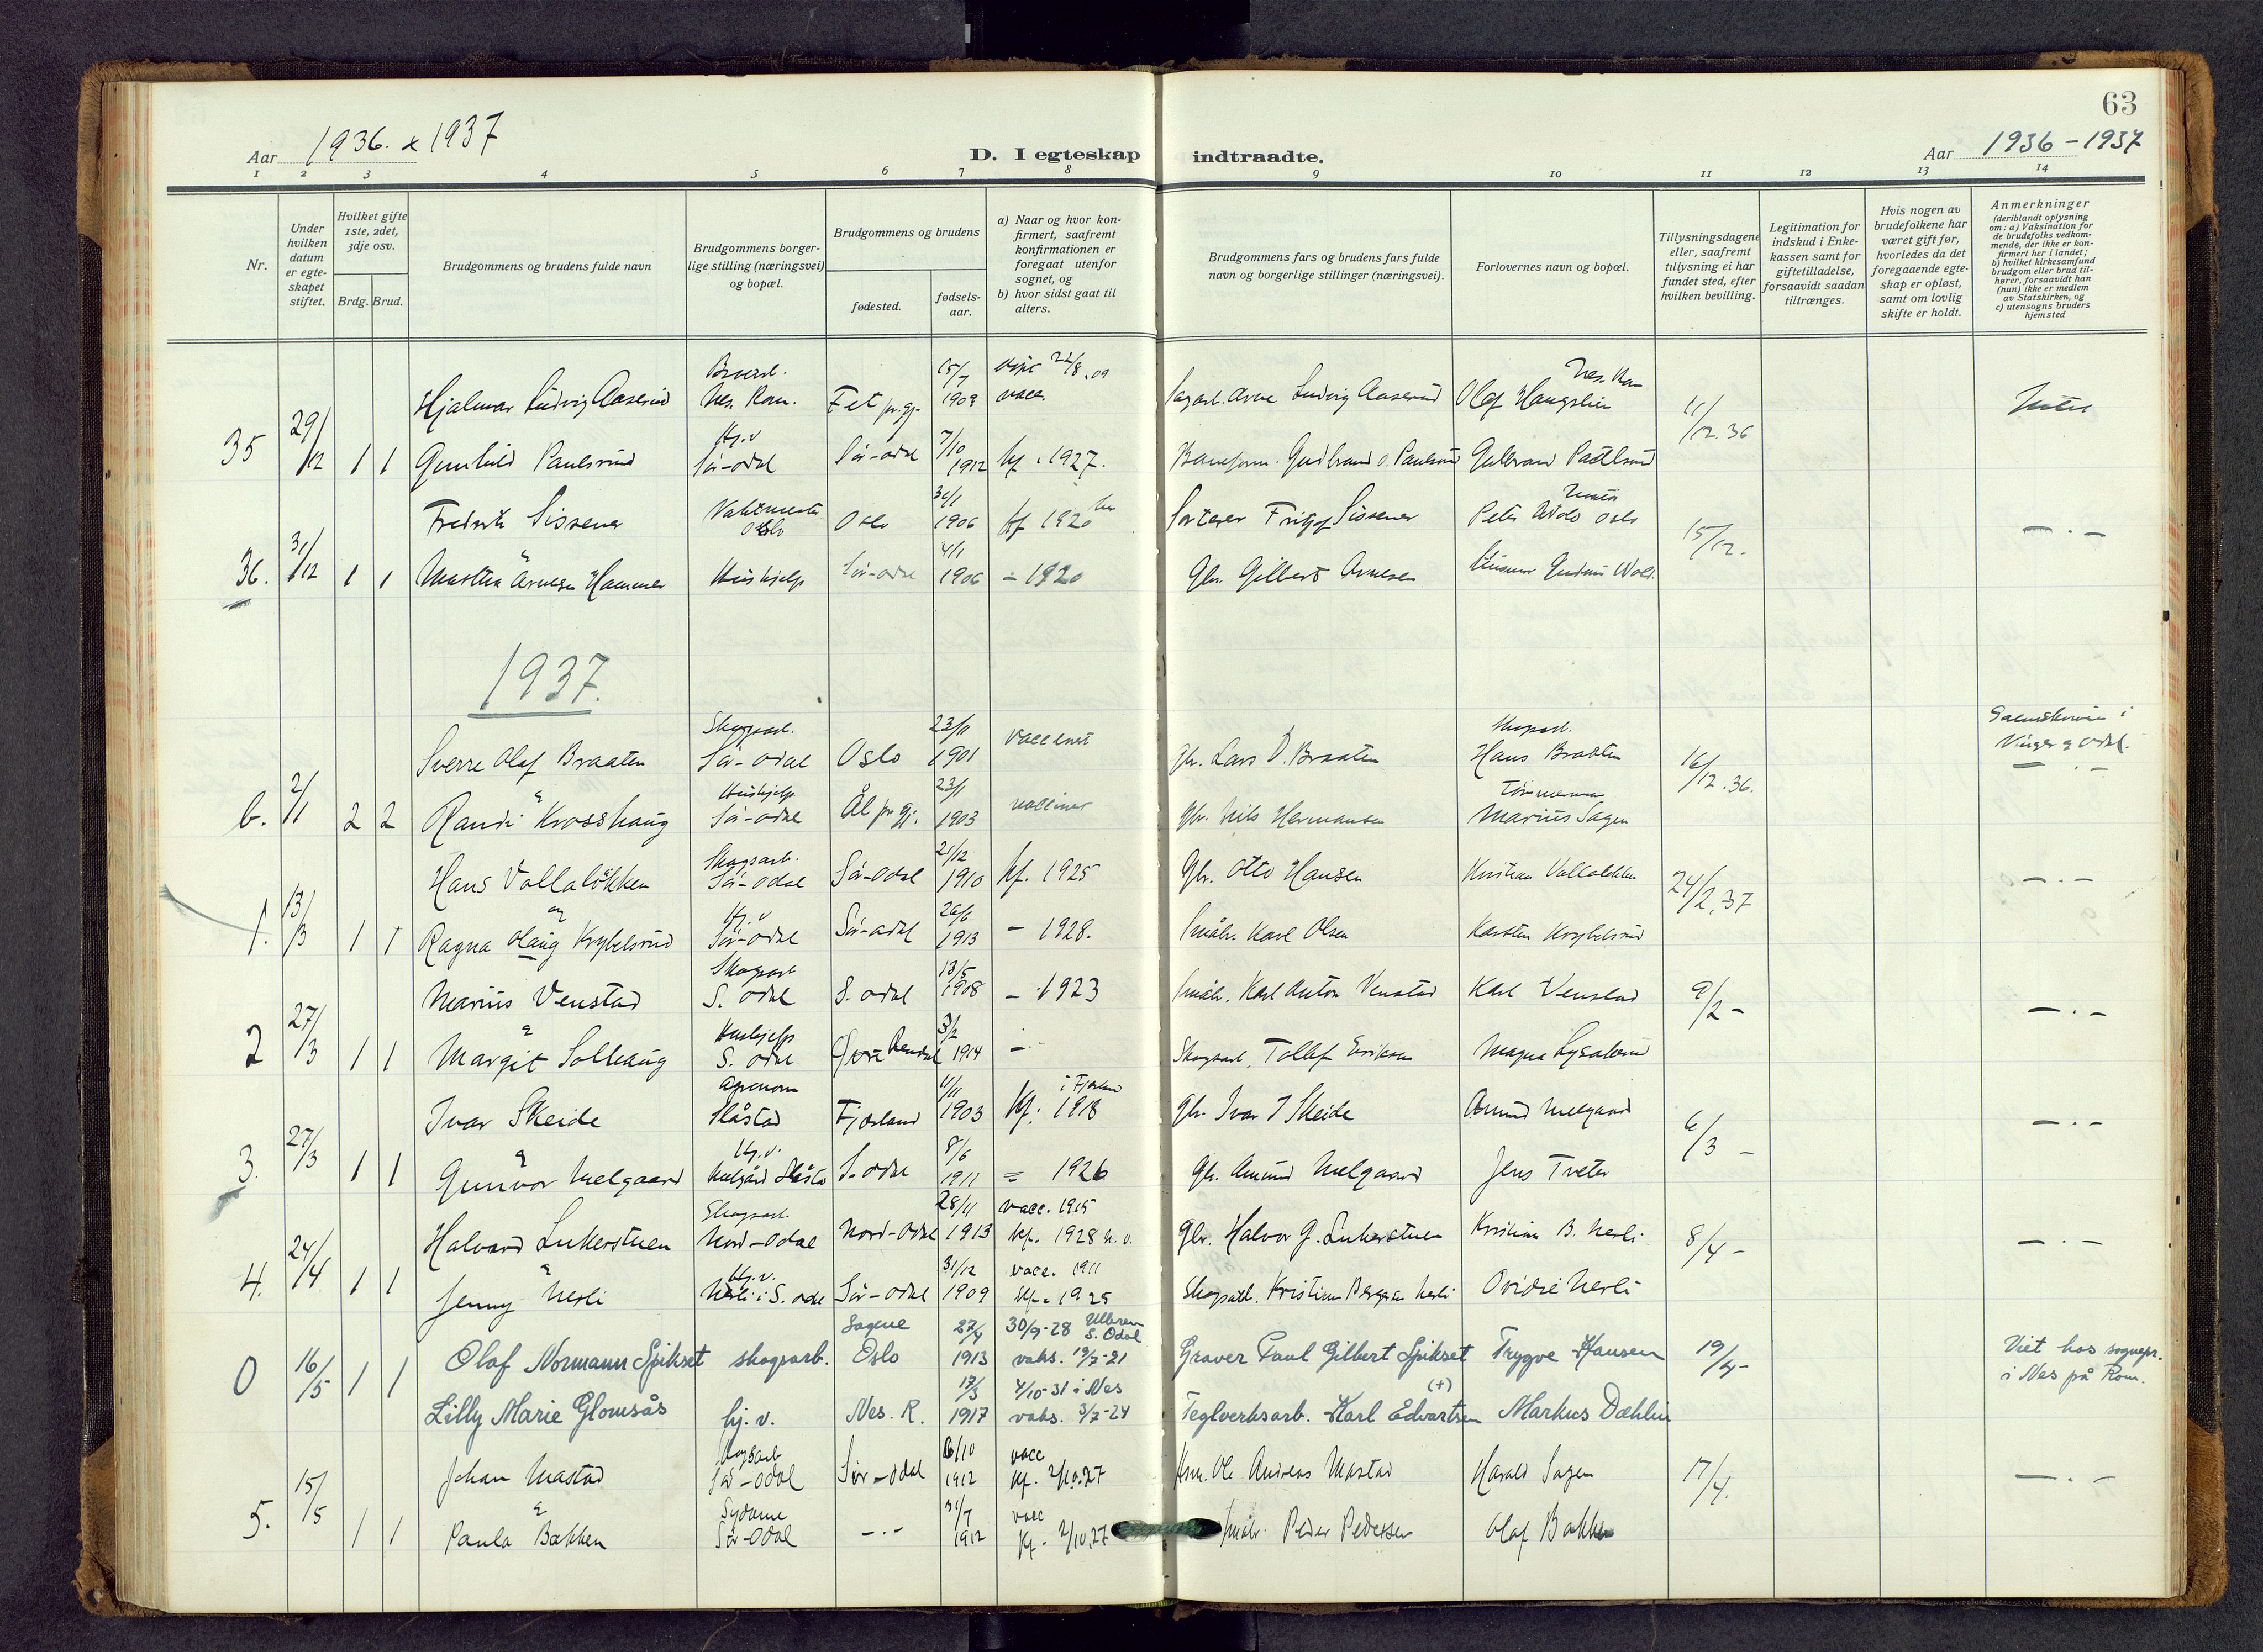 63
Aar 1936. & 1937
D. I egteskap indtraadte.
Aar 1936-1937
1 2 3 4 5 6 7 8 9 10 11 12 13 14
Nr.
Under hvilken datum er egteskapet stiftet.
Hvilket gifte 1ste, 2det, 3dje osv.
Brdg. Brud.
Brudgommens og brudens fulde navn
Brudgommens borgerlige stilling (næringsvei) og bopæl.
Brudgommens og brudens
fødested.
fødselsaar.
a) Naar og hvor konfirmert, saafremt konfirmationen er foregaat utenfor sognet, og
b) hvor sidst gaat til alters.
Brudgommens fars og brudens fars fulde navn og borgerlige stillinger (næringsvei).
Forlovernes navn og bopæl.
Tillysningsdagene eller, saafremt tillysning ei har fundet sted, efter hvilken bevilling.
Legitimation for indskud i Enkekassen samt for giftetilladelse, forsaavidt saadan tiltrænges.
Hvis nogen av brudefolkene har været gift før, hvorledes da det foregaaende egteskap er opløst, samt om lovlig skifte er holdt.
Anmerkninger
(deriblandt oplysning om: a) Vaksination for de brudefolks vedkommende, der ikke er konfirmert her i landet; b) hvilket kirkesamfund brudgom eller brud tilhører, forsaavidt han (hun) ikke er medlem av Statskirken, og c) utensogns bruders hjemsted
Hjalmar Ludvig Aaserud Nes. Rom. Fet pr. gj. 15/7 1909 22/8.09 vacc. Ludvig Aaserud Olaf Haugslien Nes. Rom
35 29/12 1 1 Gunhild Paulsrud Hj.v Sør-Odal Sør-Odal 7/10 1912 kf. 1927. Gudbrand O. Paulsrud 11/12.36
Fredrik Sissener Vaktmester Oslo Oslo 1906 kf 1920 Fritjof Sissener Peter Oslo
36. 31/12 1 1 Martha Arnesen Hammer Hushjelp Sør-Odal 4/1 1906 - 1920 Gbr. Gilbert Arnesen 15/12. -.-
1937.
Sverre Olaf Braaten Skogsarb. Sør-Odal Oslo 23/11 1901 vaccinert Gbr. Lars O. Braaten Skogsarb. Hans Braaten i Vinger og Odal.
6. 2/1 2 2 & Randi Krosshaug Hushjelp Sør-Odal Ål pr gj. 23/1 1903 Gbr. Nils Hermansen Tømmermann Marius Sagen 16/12.36. -.-
Hans Vollaløkken Skogsarb. Sør-Odal Sør-Odal 21/12 1910 kf. 1925 Gbr. Otto Hansen Kristian Vollaløkken
1. 13/3 1 1 og Ragna Olaug Krybelsrud Hj.v Sør-Odal Sør-Odal 26/6 1913 - 1928. Småbr. Karl Olsen Karsten Krybelsrud 24/2.37 -.-
Marius Venstad Skogsarb S. Odal S. Odal 13/5 1908 - 1923 Småbr. Karl Anton Venstad Karl Venstad
2 27/3 1 1 & Margit Solhaug Hushjelp S. Odal Rendal 3/2 1914 - Skogsarb. Tollef Eriksen Magna 9/2 - -.-
Ivar Skeide Agronom Slåstad Fjærland 11/11 1903 kf. i Fjærland 1918 Gbr. Ivar I Skeide Amund Melgaard
3. 27/3 1 1 & Gunvor Melgaard Hj.v. Melgård Slåstad S. Odal 8/6 1911 = 1926 Gbr. Amund Melgaard Jens Tveter 6/3 - -.-
Halvard Lukerstuen Skogsarb. Nord-Odal Nord-Odal 28/11 1913 vacc. 1915 kf. 1928 N.O. Gbr. Halvor G. Lukerstuen Kristian B. Nerli
4. 24/4 1 1 & Jenny Nerli Hj.v. Nerli i S. Odal Sør-Odal 31/12 1909 vacc. 1911 kf. 1925 Skogsarb. Kristian Bergersen Nerli Ovidie Nerli 8/4 - -.-
0 16/5 1 1 Olaf Normann Spikset skogsarb. Sagene Oslo 27/4 1913 30/9-28 Ullern S. Odal vaks. 19/7-21 Graver Paul Gilbert Spikset Trygve Hansen 19/4- Viet hos sognepr. i Nes på Rom.
Lilly Marie Glomsås hj. v. Nes. R. 17/3 1917 4/10-31 i Nes vaks. 3/7-24 Teglverksarb. Karl Edvartsen (+) Markus Dæhlin
Johan Mastad Skogsarb Sør-Odal Sør-Odal 6/10 1912 vacc kf. 2/10.27 Ole Andreas Mastad Harald Sagen
5. 15/5 1 1 & Paula Bakken Sydame Sør-Odal -.- 31/7 1912 vacc kf. 2/10.27 Småbr. Peder Pedersen Olaf Bakken 17/4. -.-